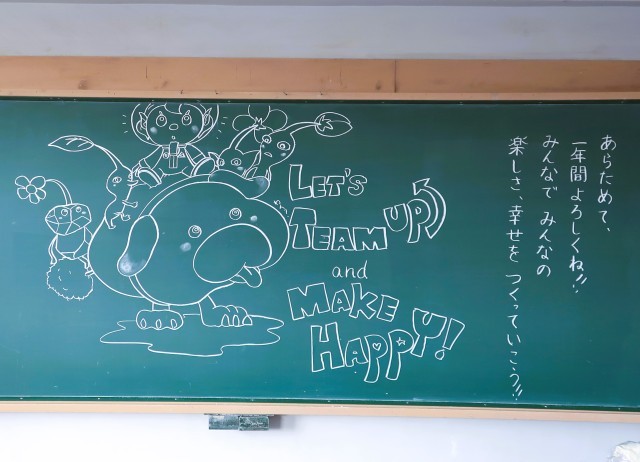 LET'S
TEAM UP
and
MAKE
HAPPY!
あらためて、
一年間よろしくね!!
みんなで みんなの
楽しさ、幸せを つくっていこう!!